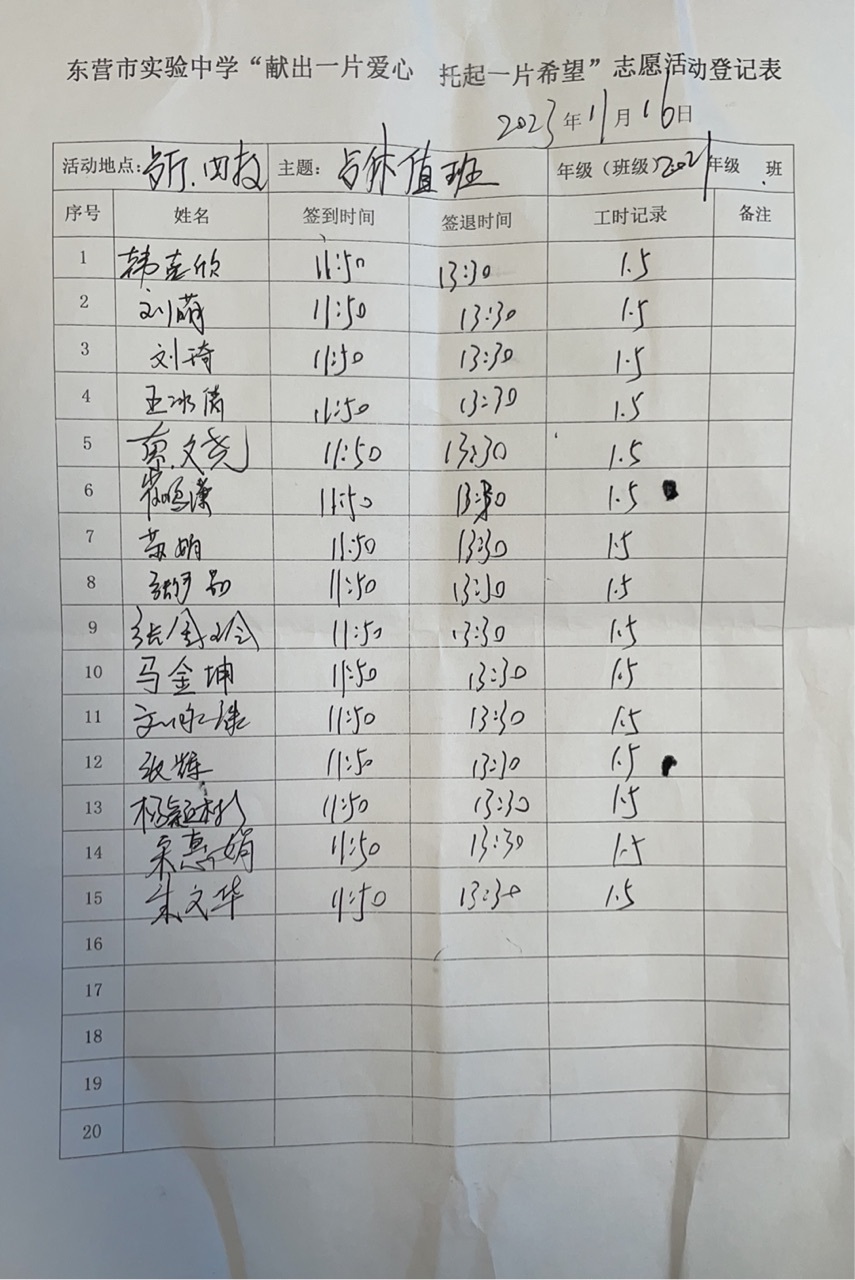 东营市实验中学“献出一片爱心 托起一片希望”志愿活动登记表
2023年11月16日
活动地点: 主题: 值班 年级（班级）2021年级 班
序号 姓名 签到时间 签退时间 工时记录 备注
1 韩嘉欣 11:50 13:30 1.5
2 刘萌 11:50 13:30 1.5
3 刘琦 11:50 13:30 1.5
4 王冰倩 11:50 13:30 1.5
5 文尧 11:50 13:30 1.5
6 11:50 13:30 1.5
7 苏娟 11:50 13:30 1.5
8 11:50 13:30 1.5
9 张金 11:50 13:30 1.5
10 马金坤 11:50 13:30 1.5
11 刘 11:50 13:30 1.5
12 张辉 11:50 13:30 1.5
13 杨 11:50 13:30 1.5
14 宋惠娟 11:50 13:30 1.5
15 朱文华 11:50 13:30 1.5
16
17
18
19
20